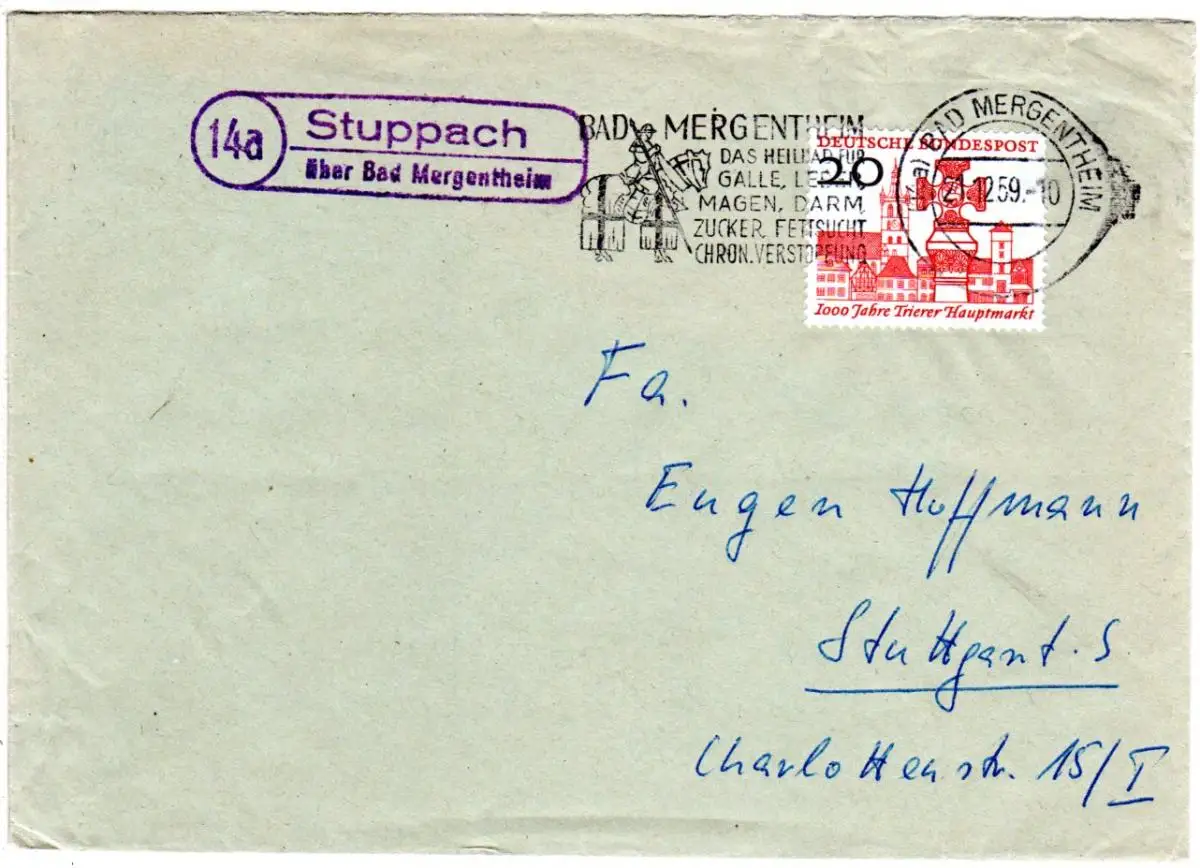 14a
Stuppach
über Bad Mergentheim
BAD MERGENTHEIM
DAS HEILBAD FÜR
GALLE, LEBER,
MAGEN, DARM,
ZUCKER, FETTSUCHT
CHRON. VERSTOPFUNG
(14a) BAD MERGENTHEIM
59.-10
DEUTSCHE BUNDESPOST
20
1000 Jahre Trierer Hauptmarkt
Fa.
Eugen Hoffmann
Stuttgart. S
Charlottenstr. 15/I